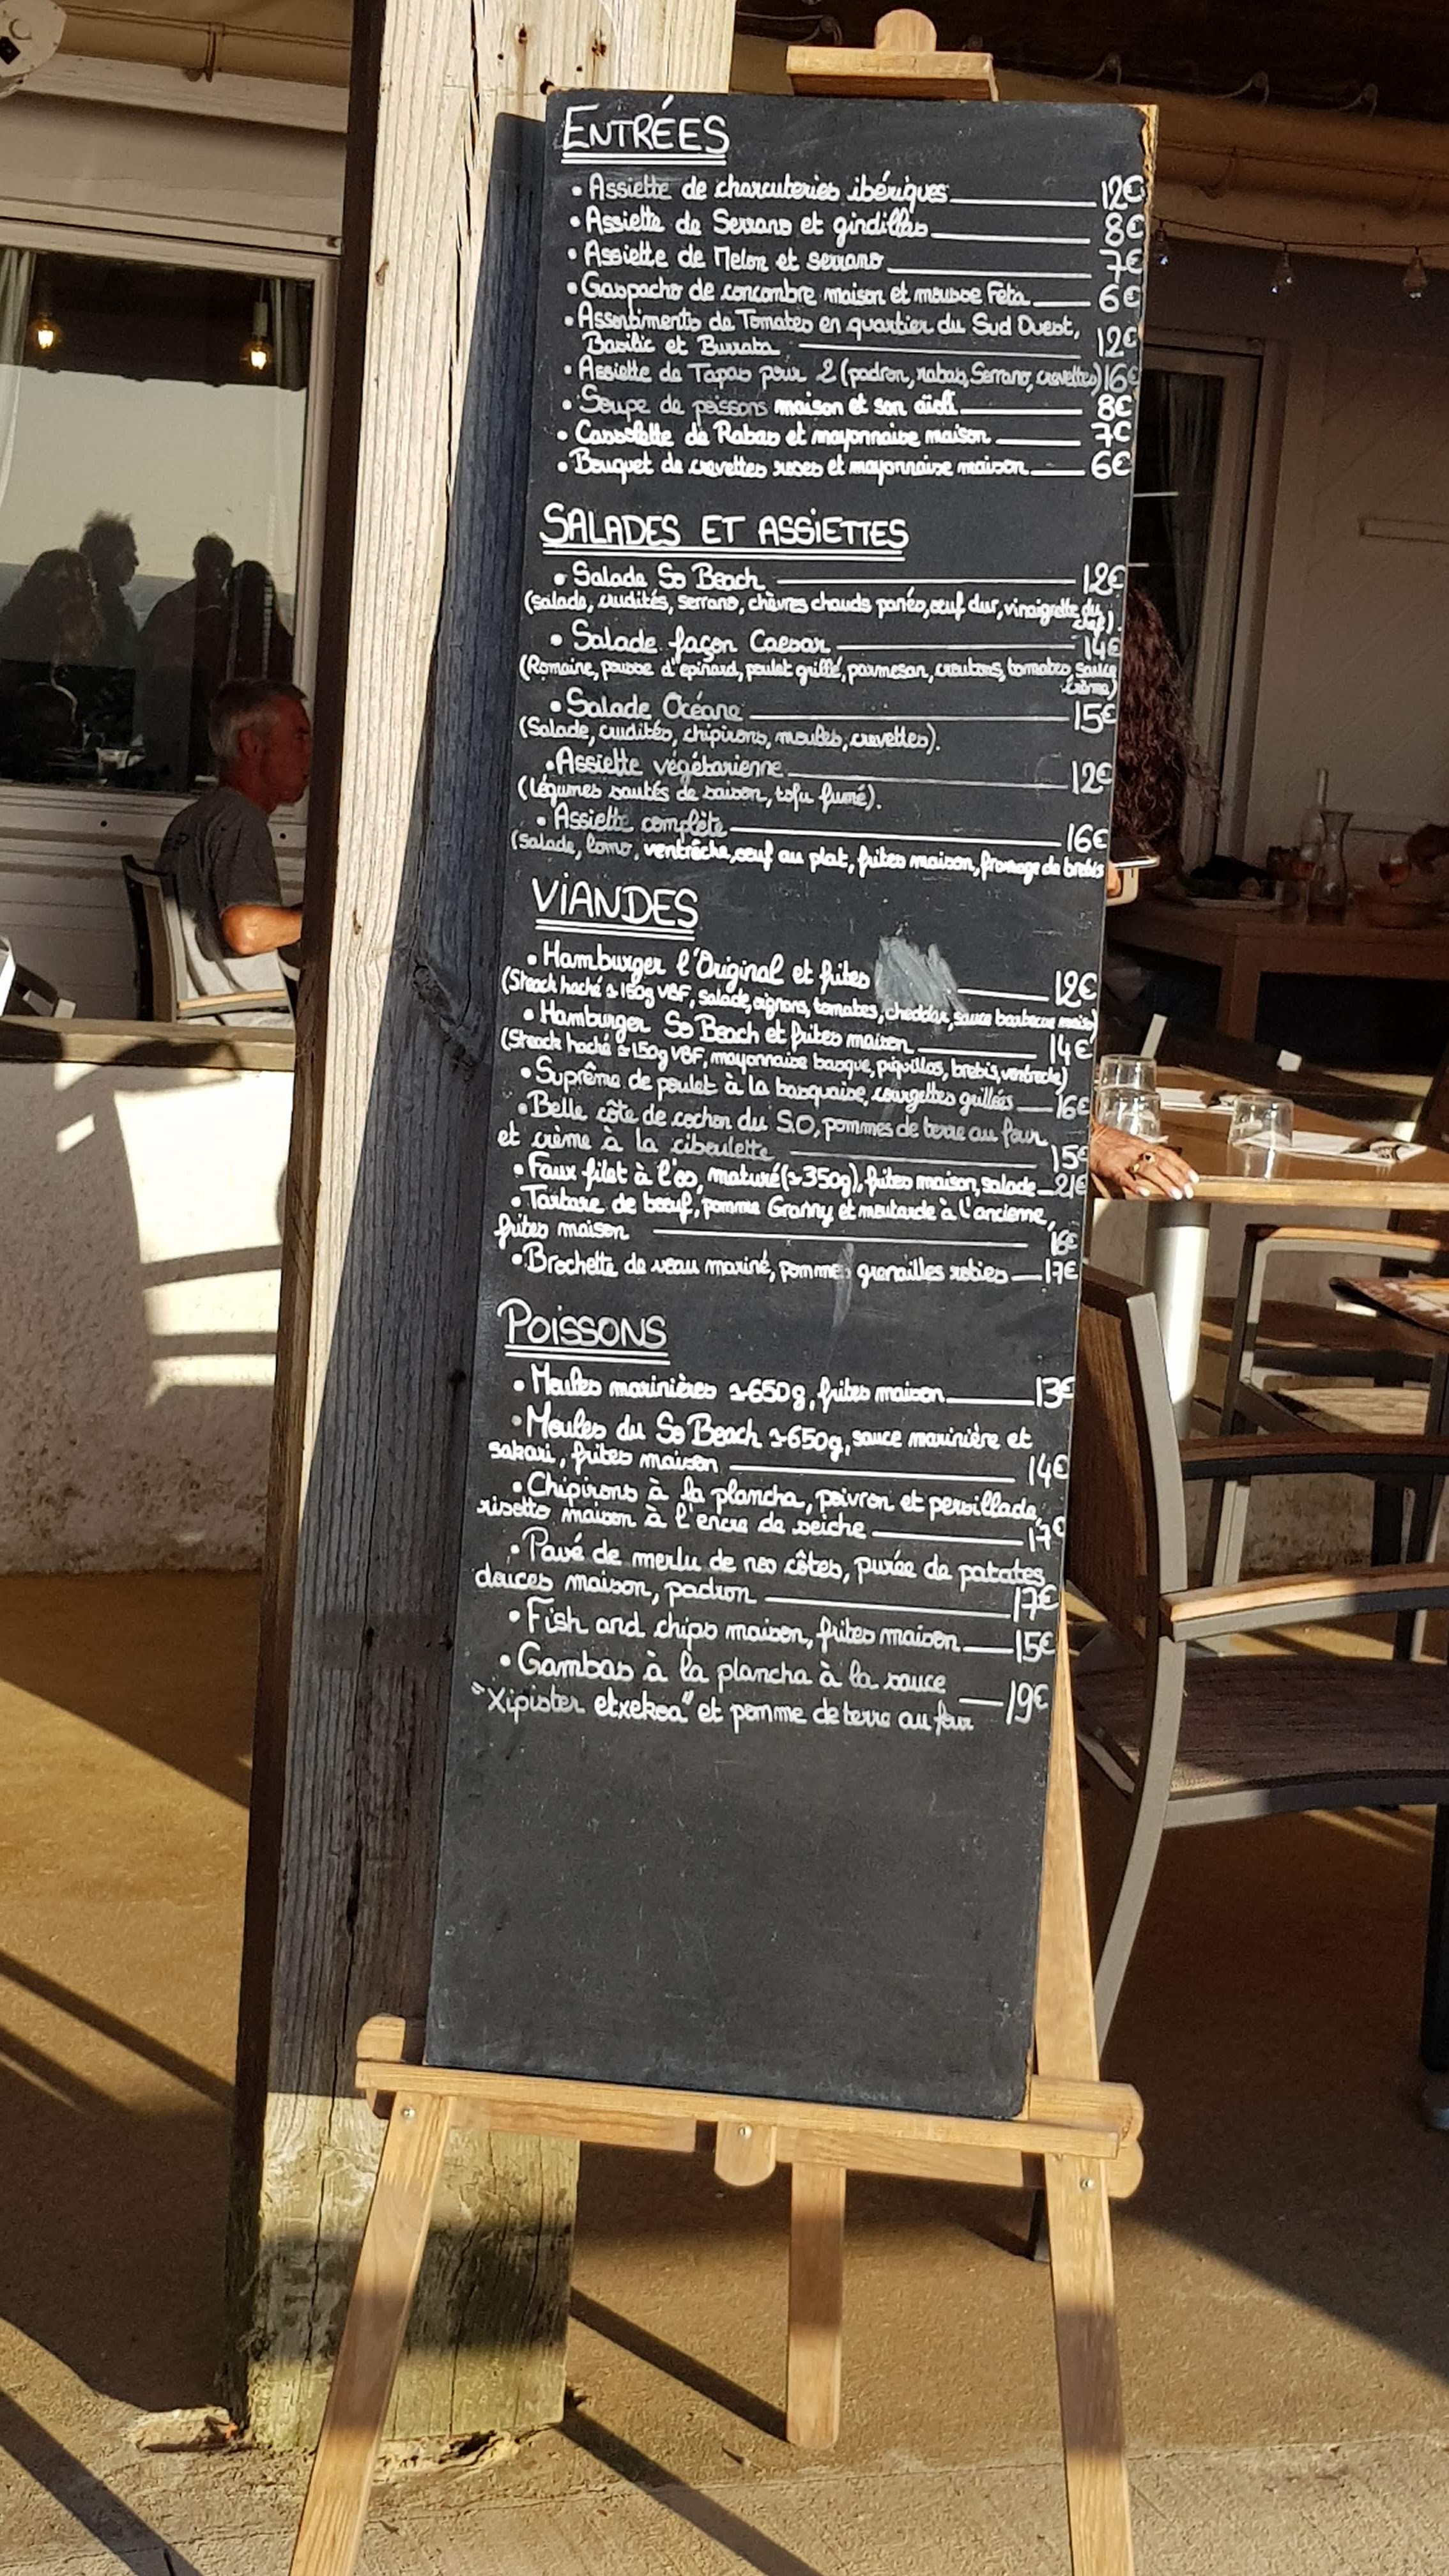 ENTRÉES
• Assiette de charcuteries ibériques 12€
• Assiette de Serrano et gindillas 8€
• Assiette de Melon et serrano 7€
• Gaspacho de concombre maison et mousse Feta 6€
• Assortiments de Tomates en quartier du Sud Ouest,
Basilic et Burrata 12€
• Assiette de Tapas pour 2 (padron, rabas, Serrano, crevettes) 16€
• Soupe de poissons maison et son aïoli 8€
• Cassolette de Rabas et mayonnaise maison 7€
• Bouquet de crevettes roses et mayonnaise maison 6€
SALADES ET ASSIETTES
• Salade So Beach 12€
(salade, crudités, serrano, chèvres chauds panés, oeuf dur, vinaigrette du
chef).
• Salade façon Caesar 14€
(Romaine, pousse d'épinard, poulet grillé, parmesan, croutons, tomates, sauce
crème)
• Salade Océane 15€
(Salade, crudités, chipirons, moules, crevettes).
• Assiette végétarienne 12€
(légumes sautés de saison, tofu fumé).
• Assiette complète 16€
(salade, lomo, ventrêche, oeuf au plat, frites maison, fromage de brebis
VIANDES
• Hamburger l'Original et frites 12€
(Steack haché ≃ 150g VBF, salade, oignons, tomates, cheddar, sauce barbecue maison)
• Hamburger So Beach et frites maison 14€
(Steack haché ≃ 150g VBF, mayonnaise basque, piquillos, brebis, ventreche)
• Suprême de poulet à la basquaise, courgettes grillées 16€
• Belle côte de cochon du S.O, pommes de terre au four
et crème à la ciboulette 15€
• Faux filet à l'os, maturé (≃ 350g), frites maison, salade 21€
• Tartare de boeuf, pomme Granny et moutarde à l'ancienne,
frites maison 16€
• Brochette de veau mariné, pomme grenailles roties 17€
POISSONS
• Moules marinières ≃ 650g, frites maison 13€
• Moules du So Beach ≃ 650g, sauce marinière et
sakari, frites maison 14€
• Chipirons à la plancha, poivron et persillade,
risotto maison à l'encre de seiche 17€
• Pavé de merlu de nos côtes, purée de patates
douces maison, padron 17€
• Fish and chips maison, frites maison 15€
• Gambas à la plancha à la sauce
"Xipister etxekoa" et pomme de terre au four 19€